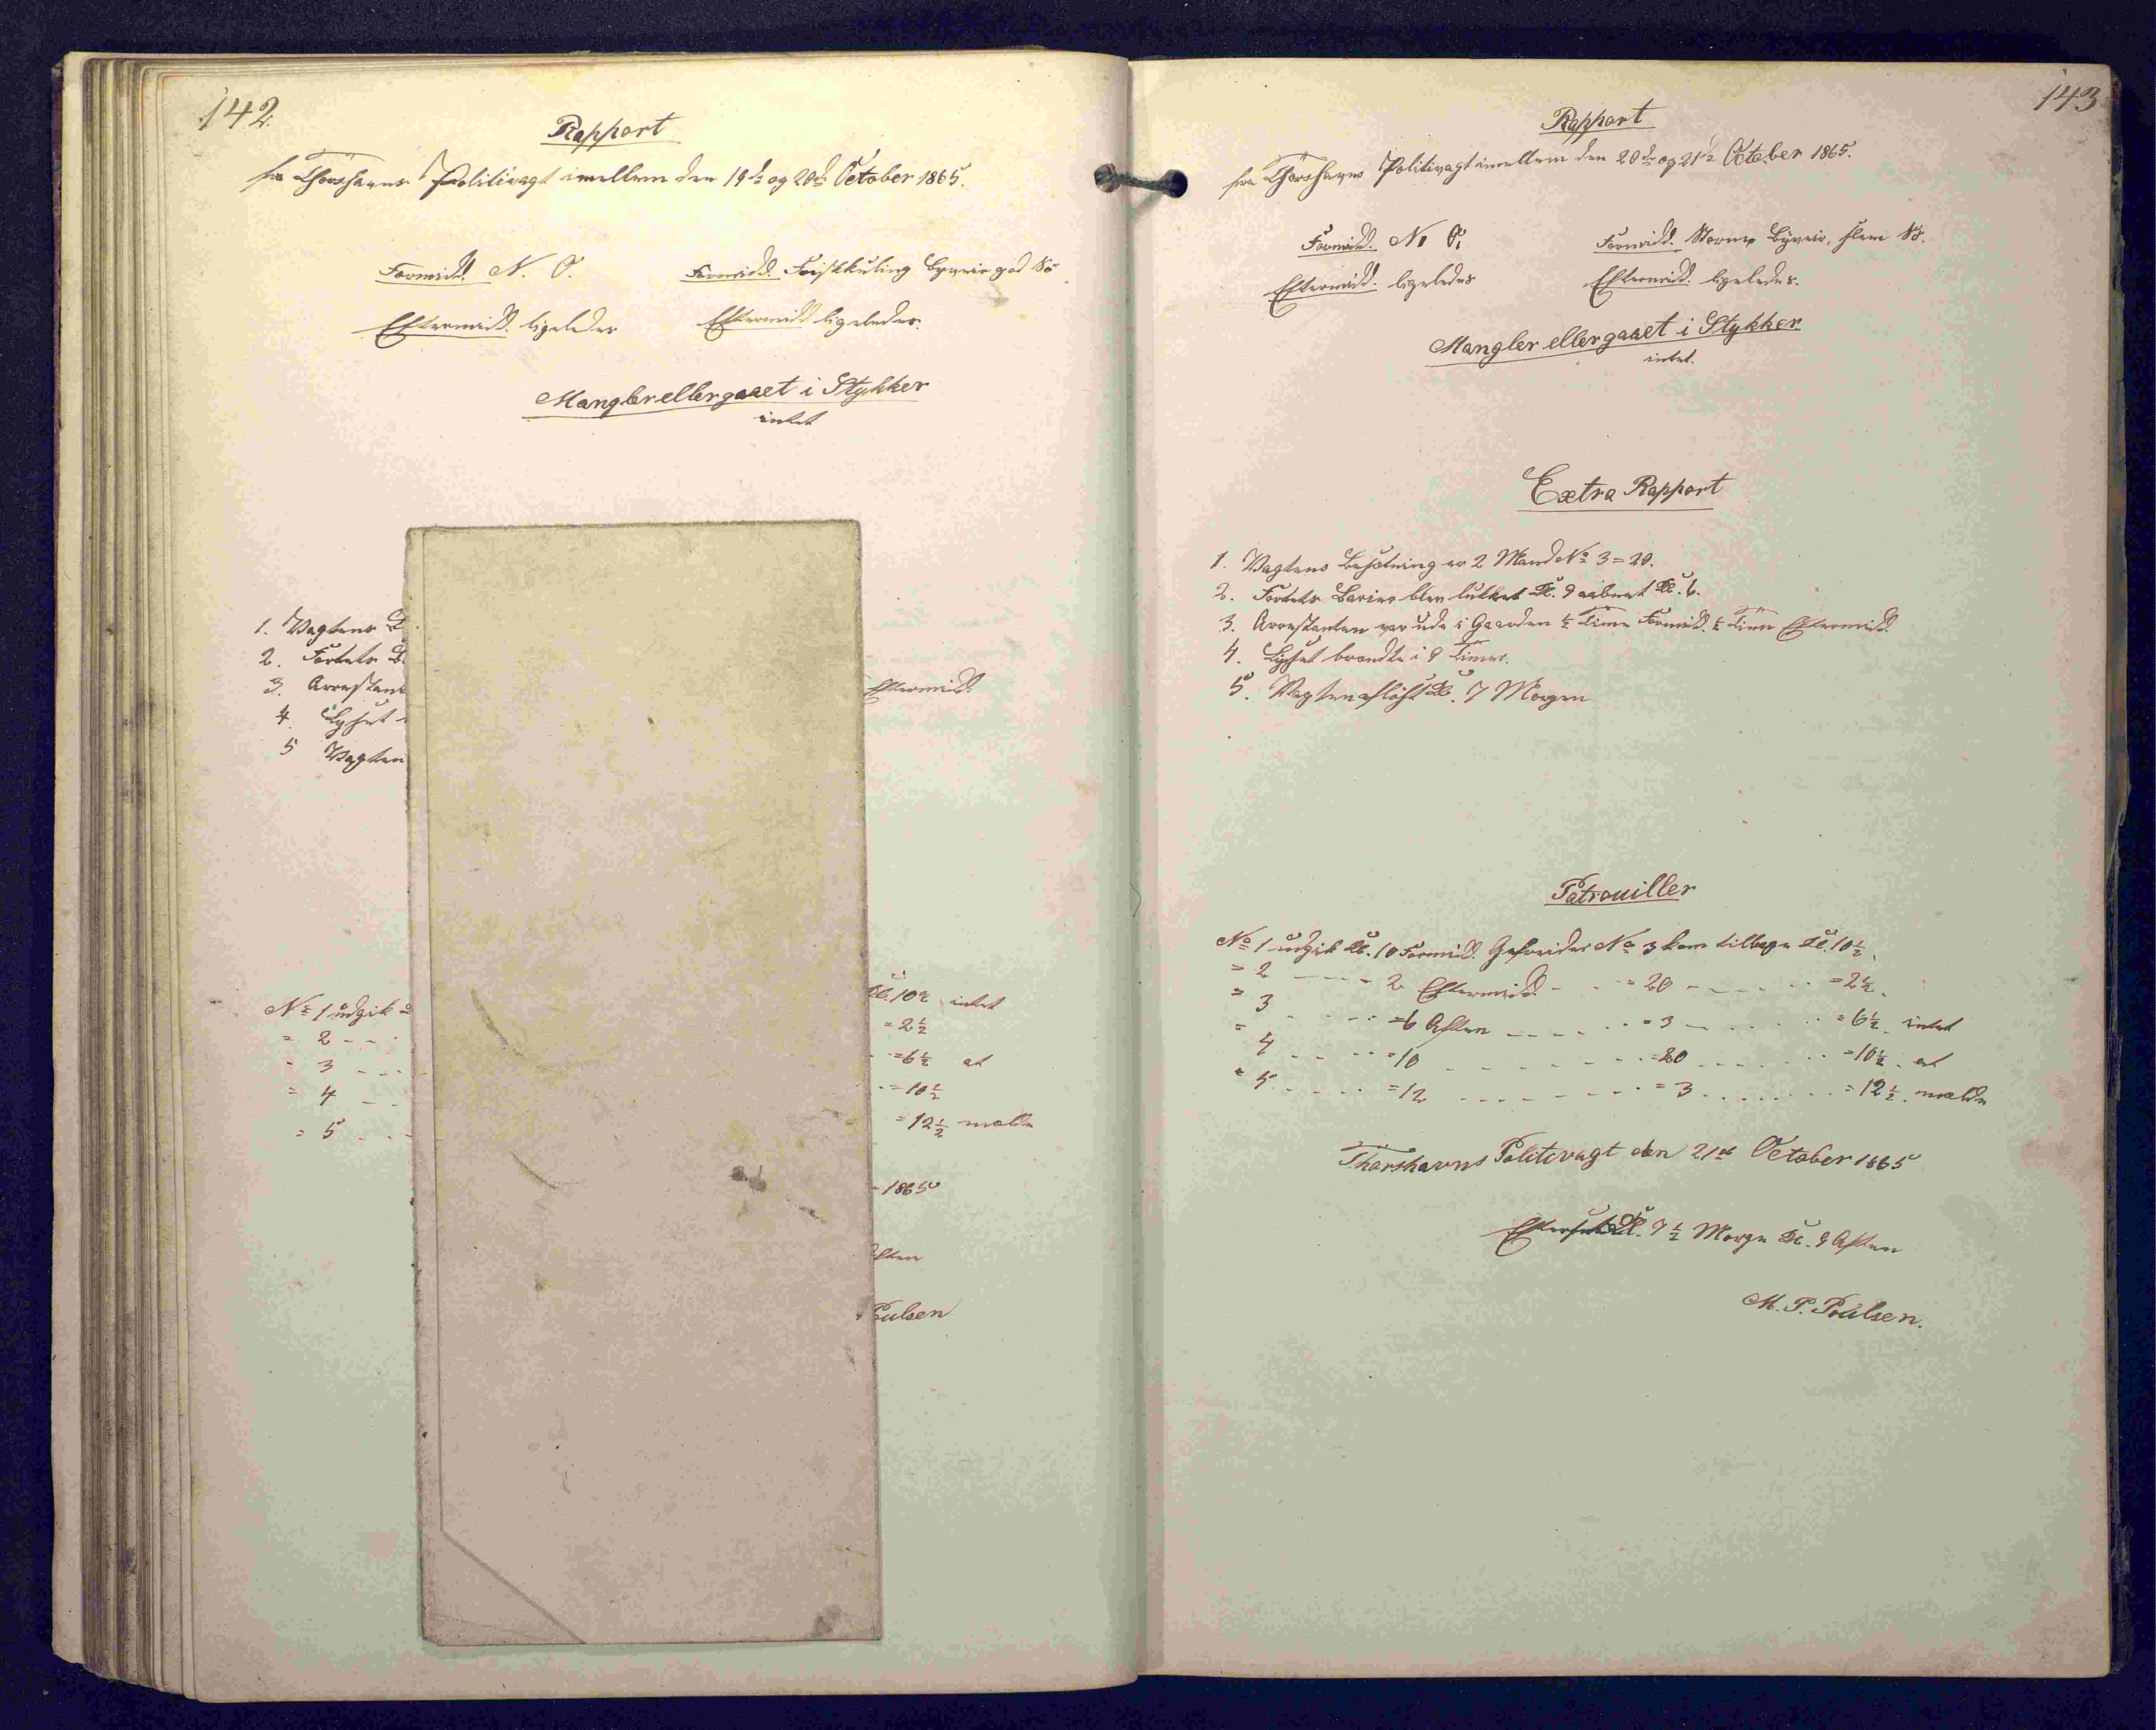 142
Rapport
fra Thorshavns Politivagt imellem den 19de og 20de October 1865.
Formidd. N. O. Formidd. Friskkuling Byveir god Sö
Eftermidd. ligeledes Eftermidd ligeledes.
Mangler eller gaaet i Stykker
intet
1. Vagtens
2. Fortets
3. Arrestant
Eftermidd.
4. Lyset
5 Vagten
No 1 udgik
Kl. 10½ intet
= 2 = 2½
= 3 = 6½ at
= 4 = 10½
= 5 = 12½ melde
1865
Aften
Poulsen
143
Rapport
fra Thorshavns Politivagt imellem den 20de og 21de October 1865.
Formidd. N. O. Formidd. Storm Byveir, slem Sö.
Eftermidd. ligeledes Eftermidd. ligeledes.
Mangler eller gaaet i Stykker
intet.
Extra Rapport
1. Vagtens Besætning er 2 Mand No 3 = 20.
2. Fortets Barier blev lukket Kl. 9 aabnet Kl. 6.
3. Arrestanten var ude i Gaarden ½ Time Formidd. ½ Time Eftermidd.
4. Lyset brændte i 9 Timer.
5. Vagten aflöst Kl. 7 Morgen
Patrouiller
No 1 udgik Kl. 10 Formidd. Gefreider No 3 kom tilbage Kl. 10½.
= 2 - - - - 2 Eftermidd. - - = 20 - - - - = 2½.
= 3 - - - - = 6 Aften - - - - = 3 - - - - = 6½ intet
= 4 - - - - = 10 - - - - = 20 - - - - = 10½. at
= 5 - - - - = 12 - - - - = 3 - - - - = 12½. melde
Thorshavns Politivagt den 21de October 1865
Efterseet Kl. 7½ Morgn Kl. 9 Aften
M. P. Poulsen.